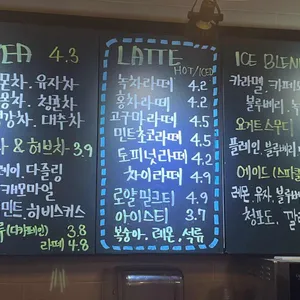 TEA 4.3
유자차
청귤차
대추차
& 허브차 3.9
다즐링
캐모마일
민트. 히비스커스
(디카페인) 3.8
라떼 4.8
LATTE
HOT/ICED
녹차라떼 4.2
홍차라떼 4.2
고구마라떼 4.5
민트초코라떼 4.5
토피넛라떼 4.2
차이라떼 4.9
로얄밀크티 4.9
아이스티 3.7
복숭아. 레몬. 석류
ICE BLEN
카라멜. 카페모
블루베리.
요거트스무디
플레인. 블루베리
에이드 (스파클
레몬. 유자. 블루베
청포도.